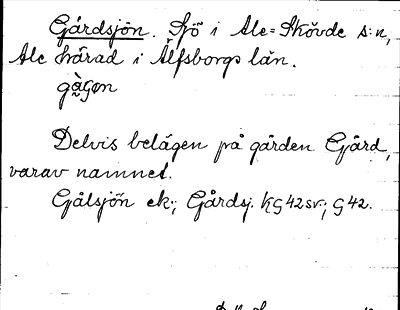 Gårdsjön. Sjö i Ale-Skövde s:n,
Ale härad i Älfsborgs län.
Delvis belägen på gården Gård,
varav namnet.
Gålsjön ek; Gårdsj. KG42sv; G42.